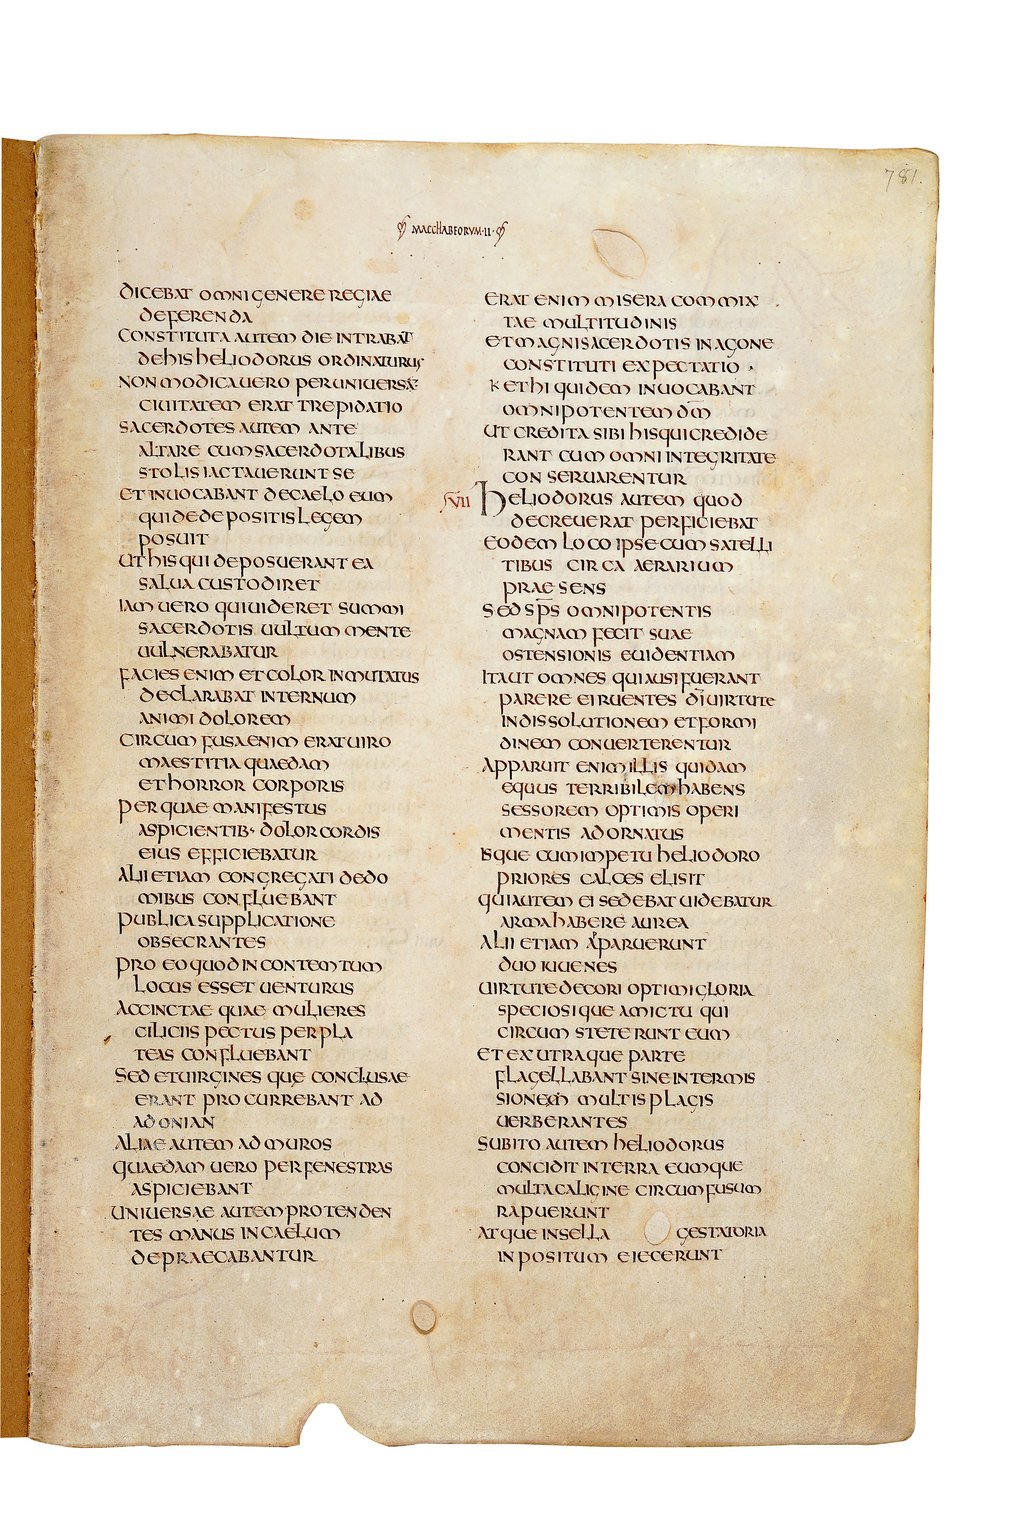 781.
MACCHABEORUM·II·
DICEBAT OMNI GENERE REGIAE
DEFERENDA
CONSTITUTA AUTEM DIE INTRABAT
DE HIS HELIODORUS ORDINATURUS
NON MODICA UERO PER UNIUERSA
CIUITATEM ERAT TREPIDATIO
SACERDOTES AUTEM ANTE
ALTARE CUM SACERDOTALIBUS
STOLIS IACTAUERUNT SE
ET INUOCABANT DE CAELO EUM
QUI DE DEPOSITIS LEGEM
POSUIT
UT HIS QUI DEPOSUERANT EA
SALUA CUSTODIRET
IAM UERO QUI UIDERET SUMMI
SACERDOTIS UULTUM MENTE
UULNERABATUR
FACIES ENIM ET COLOR INMUTATUS
DECLARABAT INTERNUM
ANIMI DOLOREM
CIRCUMFUSA ENIM ERAT UIRO
MAESTITIA QUAEDAM
ET HORROR CORPORIS
PER QUAE MANIFESTUS
ASPICIENTIB· DOLOR CORDIS
EIUS EFFICIEBATUR
ALII ETIAM CONGREGATI DE DO
MIBUS CONFLUEBANT
PUBLICA SUPPLICATIONE
OBSECRANTES
PRO EO QUOD IN CONTEMTUM
LOCUS ESSET UENTURUS
ACCINCTAE QUAE MULIERES
CILICIIS PECTUS PER PLA
TEAS CONFLUEBANT
SED ET UIRGINES QUE CONCLUSAE
ERANT PROCURREBANT AD
AD ONIAN
ALIAE AUTEM AD MUROS
QUAEDAM UERO PER FENESTRAS
ASPICIEBANT
UNIUERSAE AUTEM PROTENDEN
TES MANUS IN CAELUM
DEPRAECABANTUR
ERAT ENIM MISERA COMMIX
TAE MULTITUDINIS
ET MAGNI SACERDOTIS IN AGONE
CONSTITUTI EXPECTATIO
ET HI QUIDEM INUOCABANT
OMNIPOTENTEM DM̅
UT CREDITA SIBI HIS QUI CREDIDE
RANT CUM OMNI INTEGRITATE
CONSERUARENTUR
XVII HELIODORUS AUTEM QUOD
DECREUERAT PERFICIEBAT
EODEM LOCO IPSE CUM SATELLI
TIBUS CIRCA AERARIUM
PRAESENS
SED SP̅S OMNIPOTENTIS
MAGNAM FECIT SUAE
OSTENSIONIS EUIDENTIAM
ITA UT OMNES QUI AUSI FUERANT
PARERE EI RUENTES DI̅ UIRTUTE
IN DISSOLUTIONEM ET FORMI
DINEM CONUERTERENTUR
APPARUIT ENIM ILLIS QUIDAM
EQUUS TERRIBILEM HABENS
SESSOREM OPTIMIS OPERI
MENTIS ADORNATUS
ISQUE CUM IMPETU HELIODORO
PRIORES CALCES ELISIT
QUI AUTEM EI SEDEBAT UIDEBATUR
ARMA HABERE AUREA
ALII ETIAM APPARUERUNT
DUO IUUENES
UIRTUTE DECORI OPTIMI GLORIA
SPECIOSIQUE AMICTU QUI
CIRCUMSTETERUNT EUM
ET EX UTRAQUE PARTE
FLAGELLABANT SINE INTERMIS
SIONEM MULTIS PLAGIS
UERBERANTES
SUBITO AUTEM HELIODORUS
CONCIDIT IN TERRA EUMQUE
MULTA CALIGINE CIRCUMFUSUM
RAPUERUNT
ATQUE IN SELLA GESTATORIA
INPOSITUM EIECERUNT